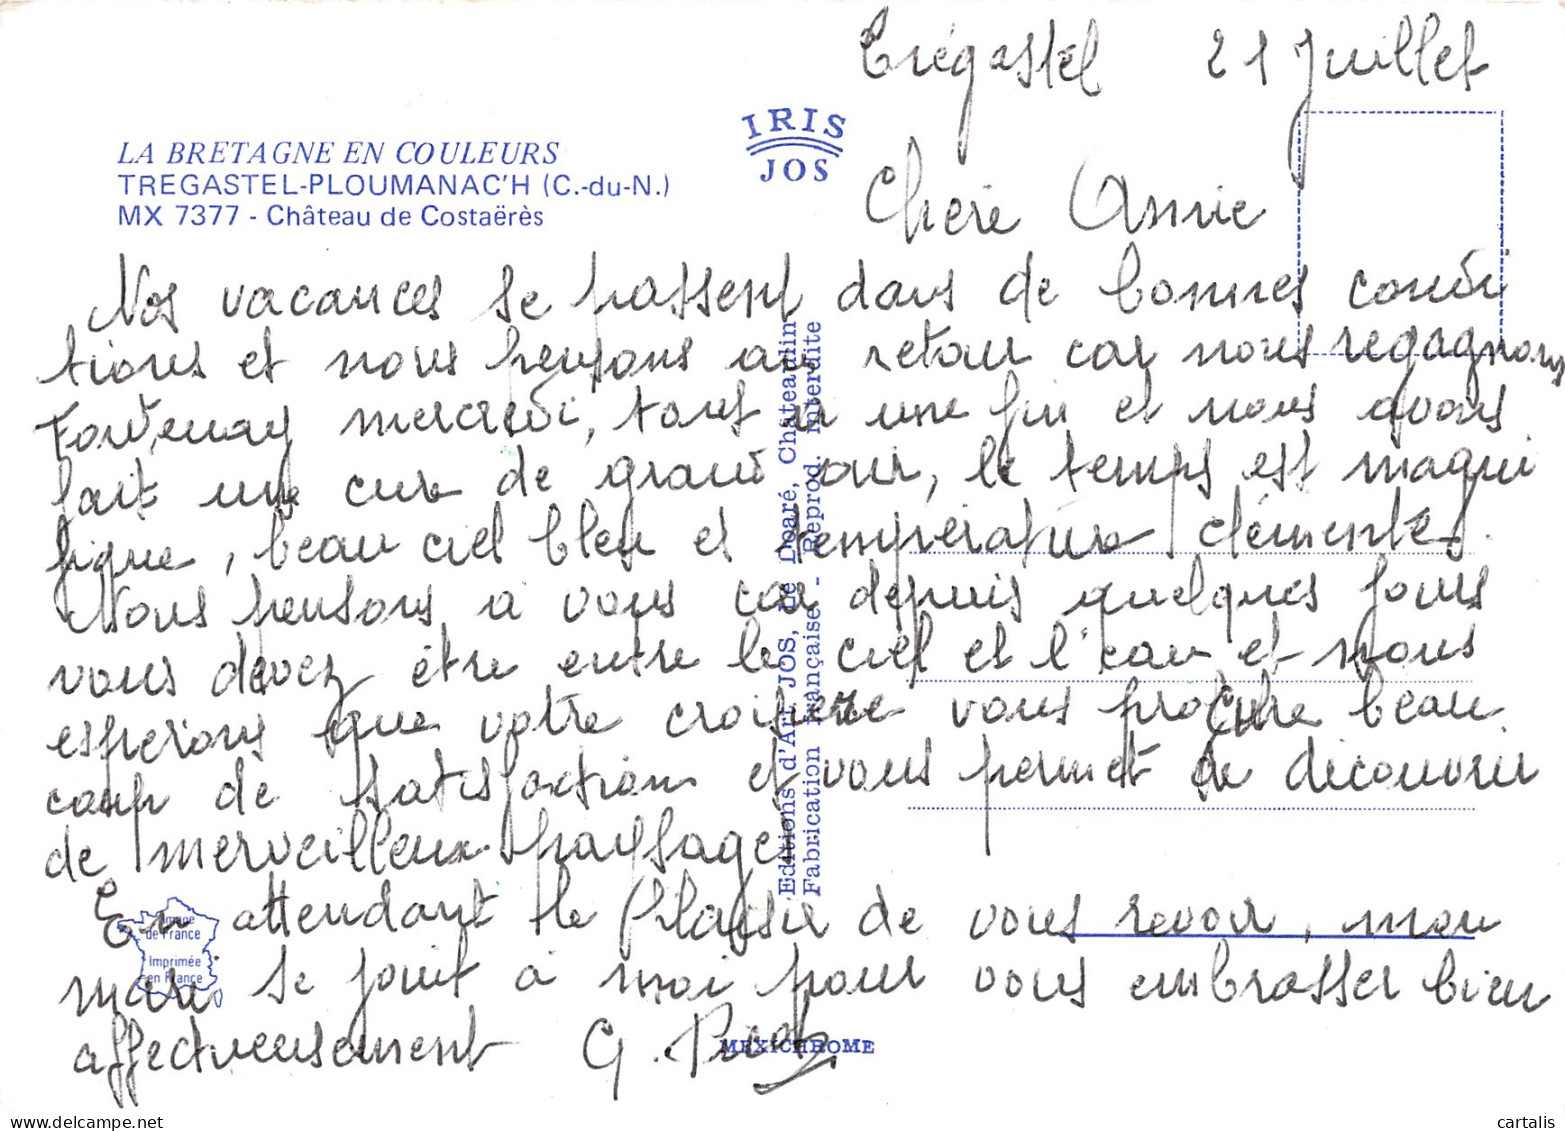 Trégastel 21 Juillet
IRIS
JOS
LA BRETAGNE EN COULEURS
TREGASTEL-PLOUMANAC'H (C.-du-N.)
MX 7377 - Château de Costaërès
Chère Annie
Nos vacances se passent dans de bonnes condi
tions et nous pensons au retour car nous regagnons
Fontenay mercredi, tout a une fin et nous avons
fait une cure de grand air, le temps est magni
fique, beau ciel bleu et température clémente.
Nous pensons à vous car depuis quelques jours
vous devez être entre le ciel et l'eau et nous
esperons que votre croisière vous procure beau
coup de satisfaction et vous permet de découvrir
de merveilleux paysages.
En attendant le plaisir de vous revoir, mon
mari se joint à moi pour vous embrasser bien
affectueusement G.
Editions d'Art JOS, Le Doaré, Chateaulin
Fabrication française - Reprod. interdite
Image
de France
Imprimée
en France
MEXICHROME
cartalis